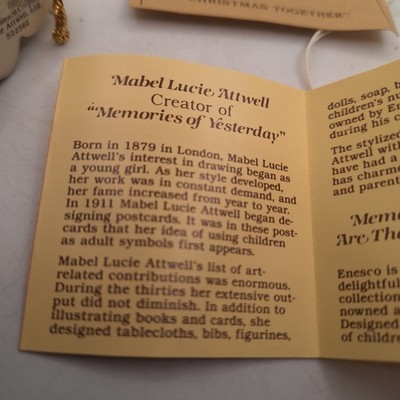 CHRISTMAS TOGETHER"
Attwell, Ltd.
522561
Mabel Lucie Attwell
Creator of
"Memories of Yesterday"
Born in 1879 in London, Mabel Lucie
Attwell's interest in drawing began as
a young girl. As her style developed,
her work was in constant demand, and
her fame increased from year to year.
In 1911 Mabel Lucie Attwell began de-
signing postcards. It was in these post-
cards that her idea of using children
as adult symbols first appears.
Mabel Lucie Attwell's list of art-
related contributions was enormous.
During the thirties her extensive out-
put did not diminish. In addition to
illustrating books and cards, she
designed tablecloths, bibs, figurines,
dolls, soap, b
children's nu
owned by En
during his c
The stylized
Attwell with
have had a
has charme
and parent
"Memo
Are The
Enesco is
delightful
collection
nowned a
Designed
of childre